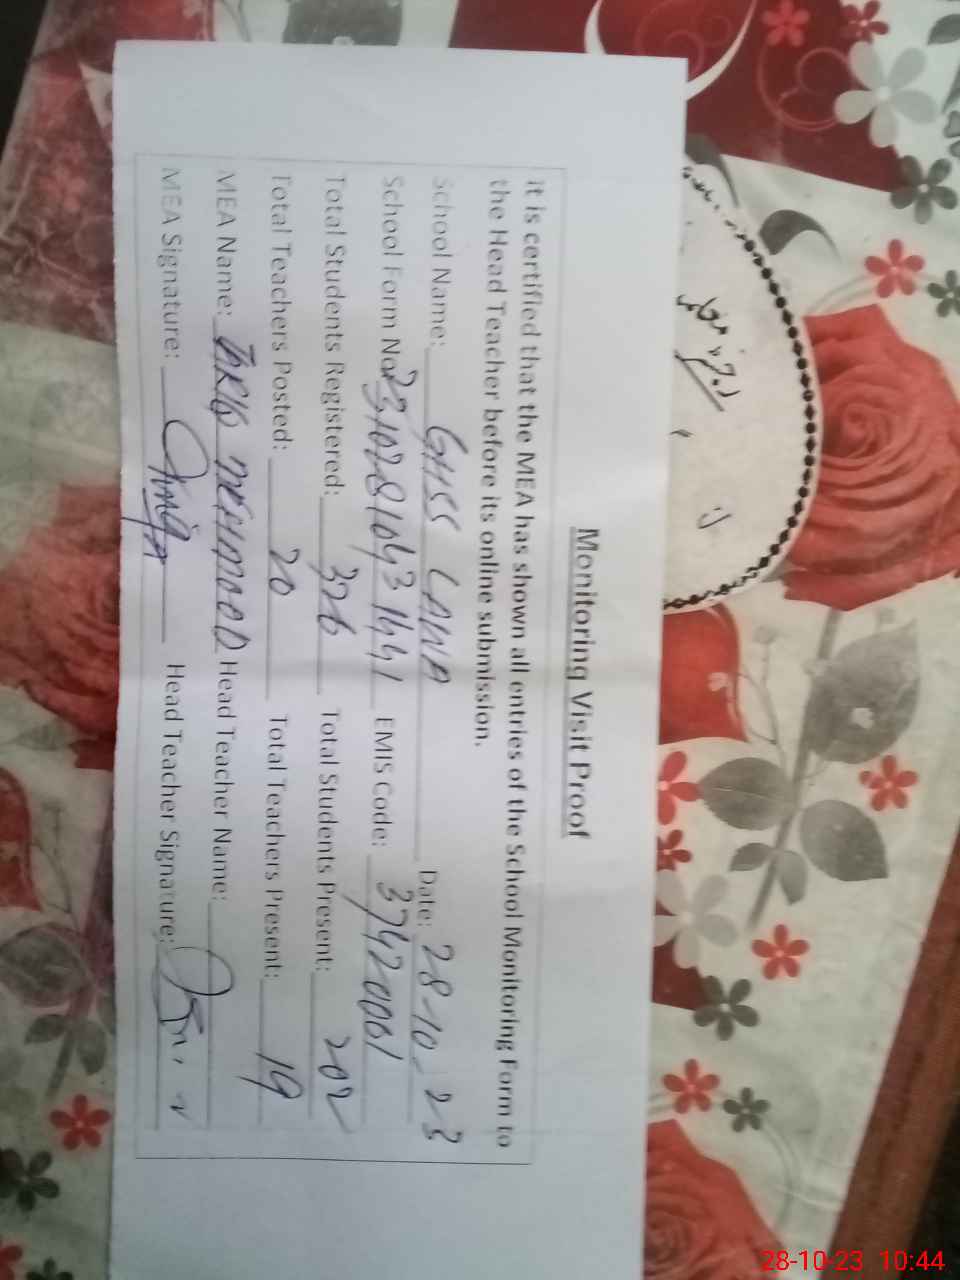 Monitoring Visit Proof
It is certified that the MEA has shown all entries of the School Monitoring Form to
the Head Teacher before its online submission.
School Name: GHSS LAWA Date: 28-10-23
School Form No: EMIS Code: 37420061
Total Students Registered: 326 Total Students Present: 202
Total Teachers Posted: 20 Total Teachers Present: 19
MEA Name: TARIQ MEHMOOD Head Teacher Name:
MEA Signature: Head Teacher Signature:
28-10-23 10:44